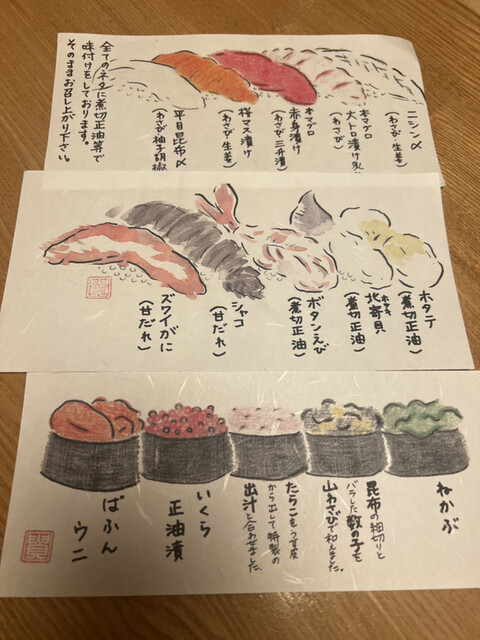 ニシン〆
(わさび・生姜)
本マグロ
大トロ漬け
(わさび)
本マグロ
赤身漬け
(わさび・三升漬)
桜マス漬け
(わさび・生姜)
平目昆布〆
(わさび柚子胡椒
全てのネタに煮切正油等で
味付けをしております。
そのままお召し上がり下さい。
ホタテ
(煮切正油)
活ホッキ
北寄貝
(煮切正油)
ボタンえび
(煮切正油)
シャコ
(甘だれ)
ズワイがに
(甘だれ)
ねかぶ
昆布の細切りと
バラした数の子を
山わさびで和えました。
たらこをうす皮
から出して特製の
出汁と合わせました。
いくら
正油漬
ばふん
ウニ